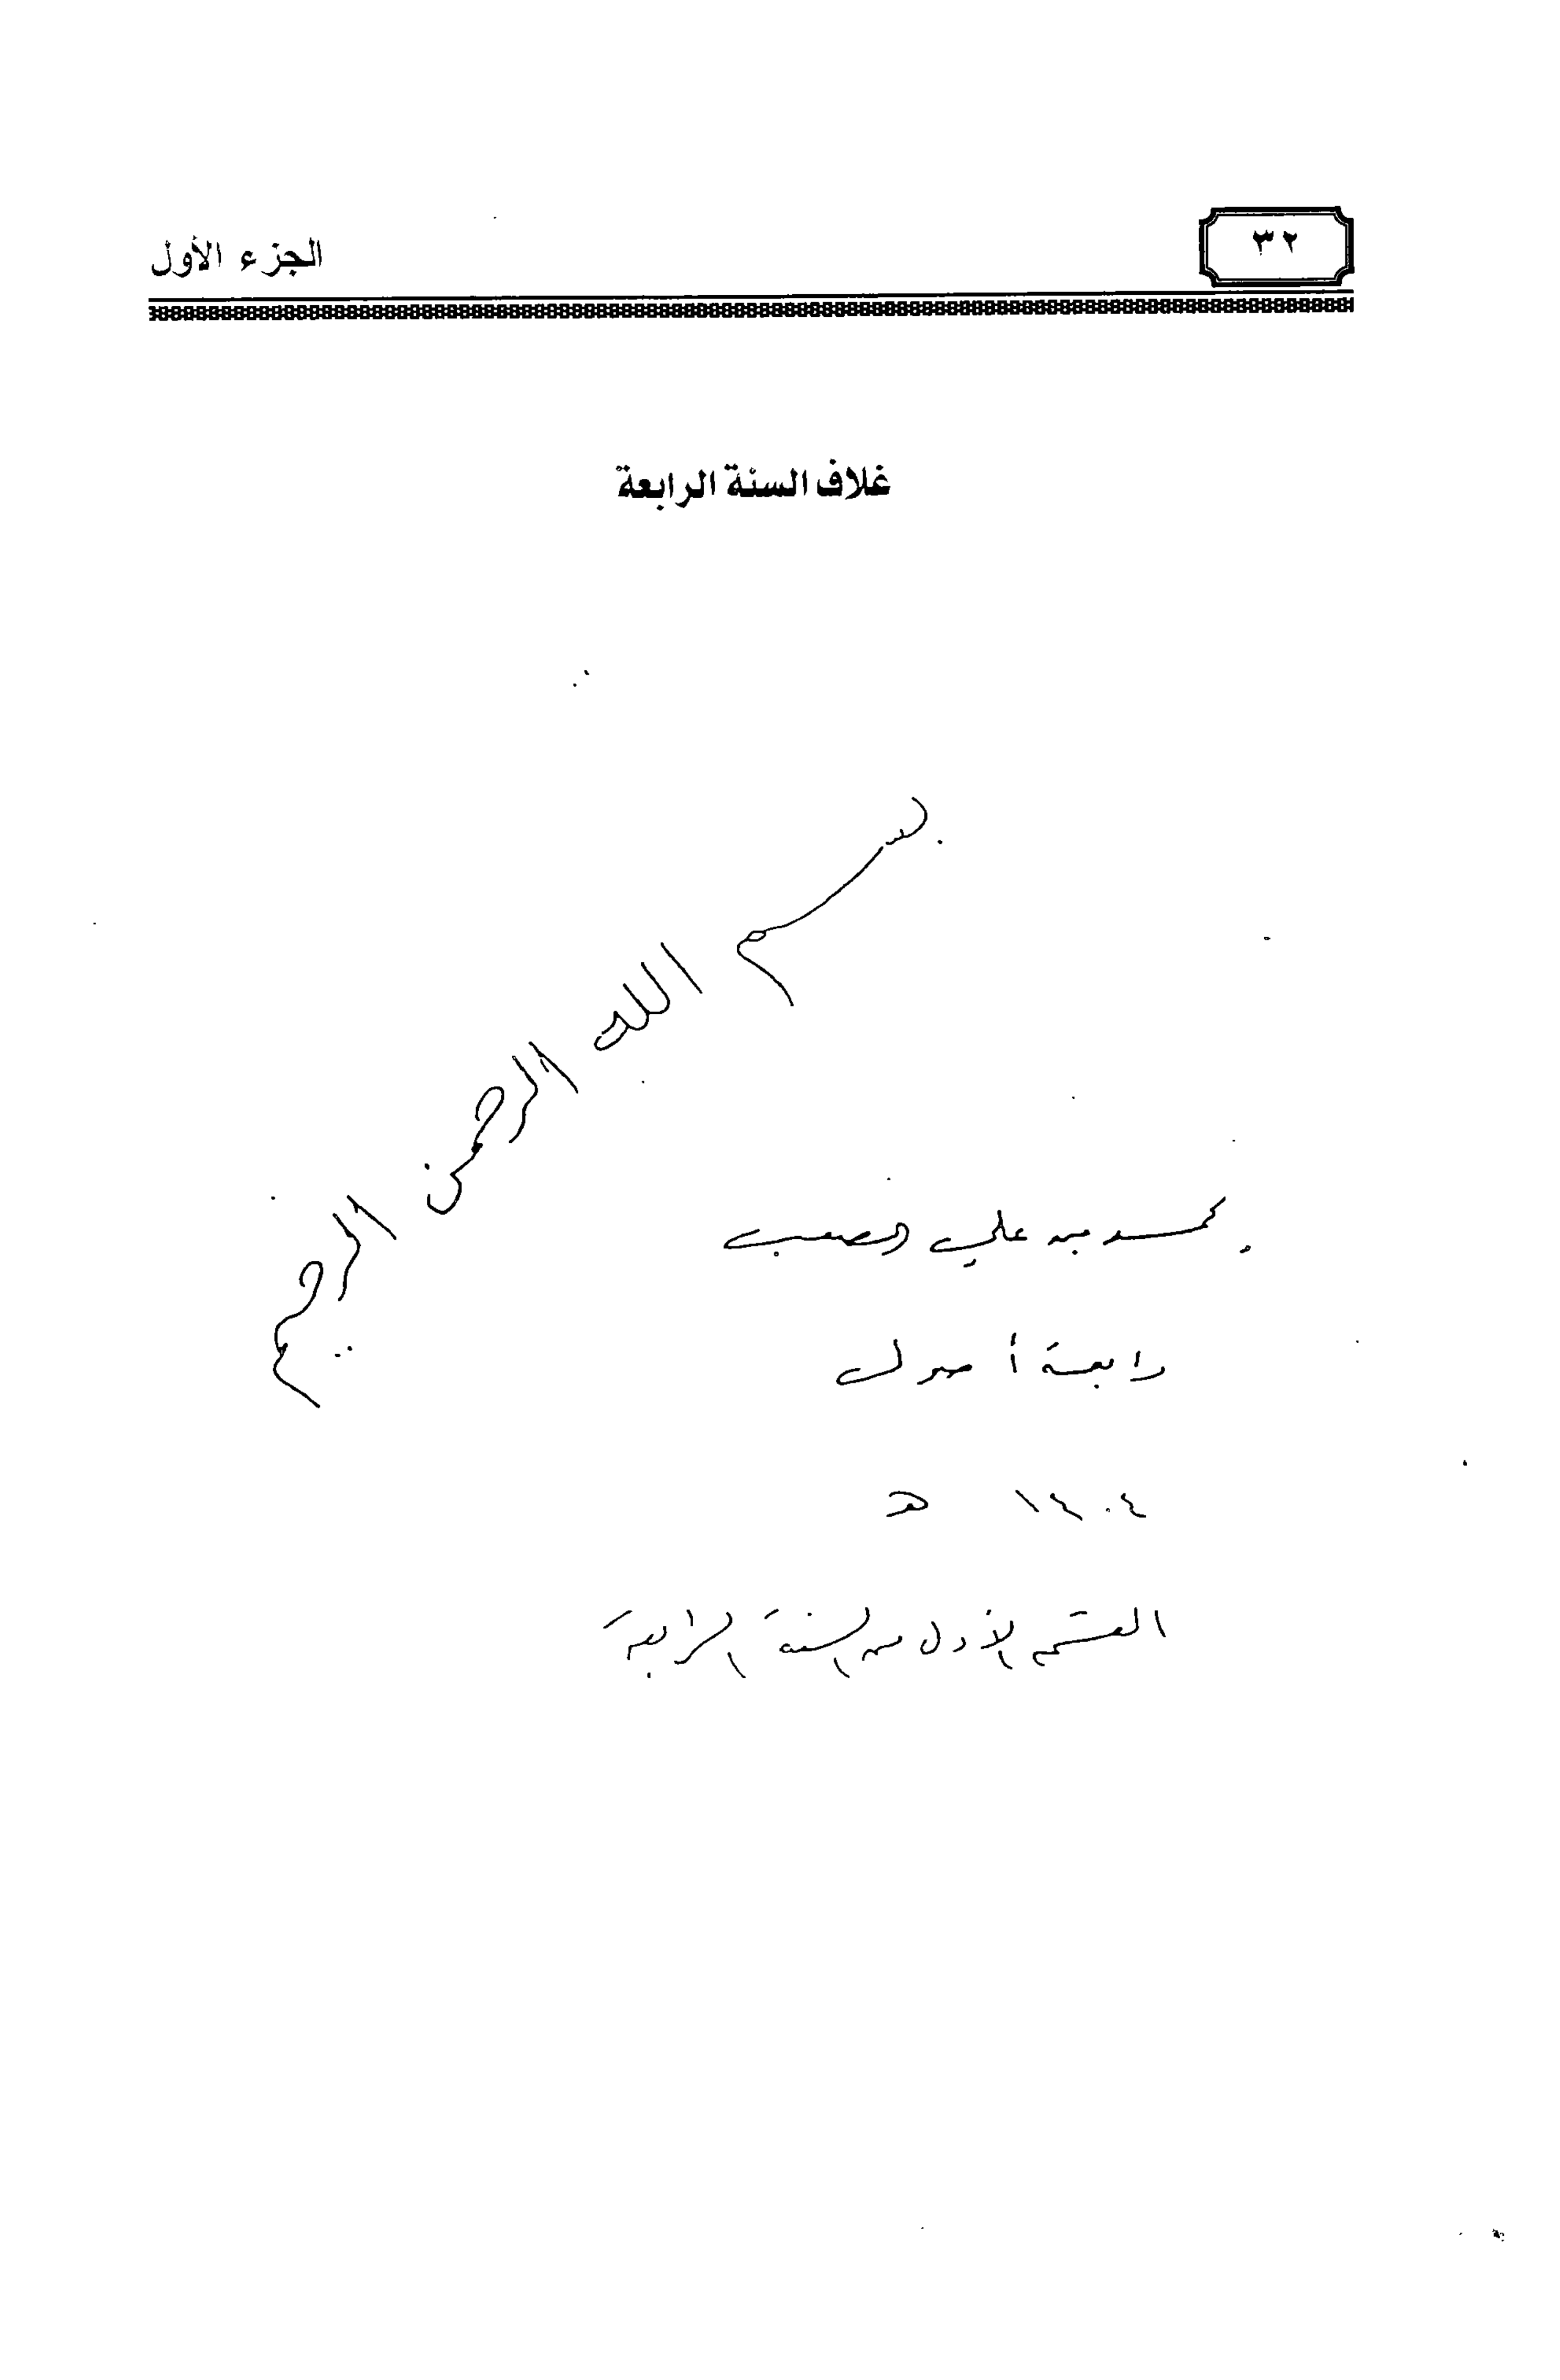 ٣٢ الجزء الأول
غلاف السنة الرابعة
بسم الله الرحمن الرحيم
محمد بن علي الصعب
رابعة أصول
١٤٠٤ هـ
القسم الأول من السنة الرابعة